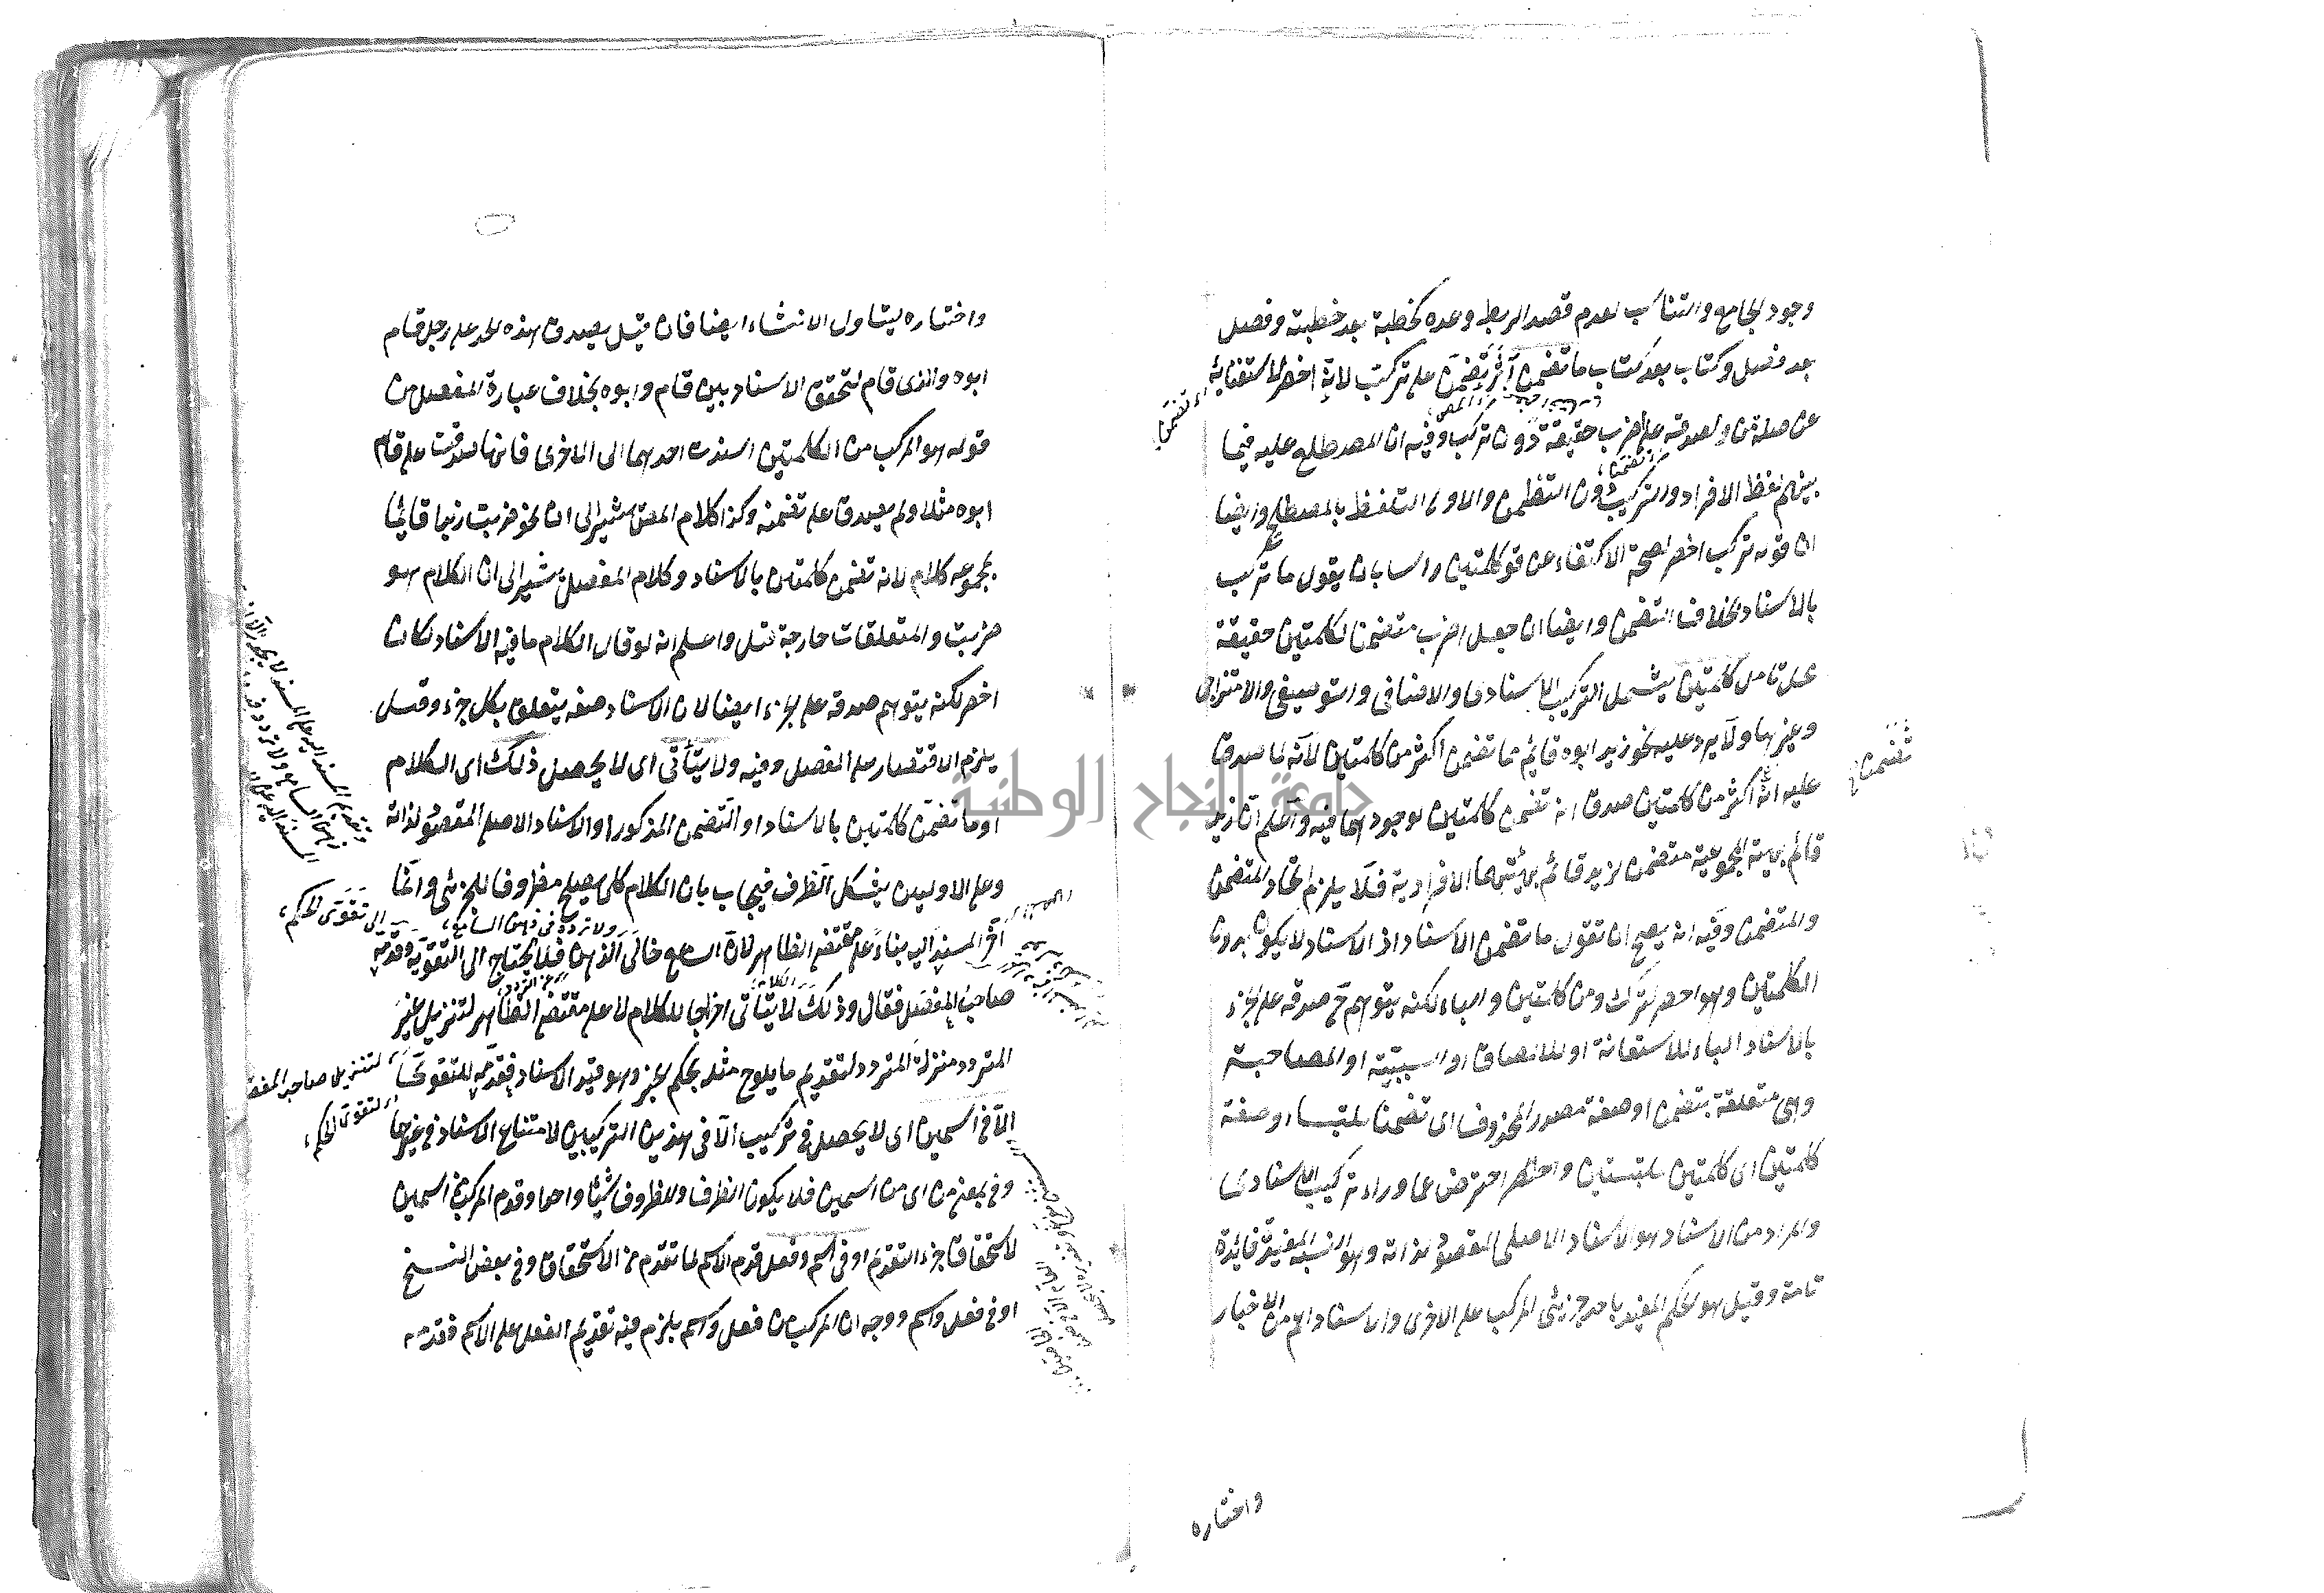 وجود الجامع والتناسب لعدم قصد الربط وعده كخطبة بعد خطبة وفصل
بعد فصل وكتاب بعد كتاب ما تضمن آثر تضمن على تركب لانه اخصر لاستغنائه
عن صلة من ولصدقه على اضرب حقيقة دون تركب وفيه ان المصطلح عليه فيما
بينهم لفظ الافراد والتركيب دون التضمن والاولى التلفظ بالمصطلح وايضا
ان قوله تركب اخصر لصحة الاكتفاء عن قوله كلمتين راسا بان يقول ما تركب
بالاسناد بخلاف التضمن وايضا ان جعل اضرب متضمنا لكلمتين حقيقة
محل تامل كلمتين يشمل التركيب الاسنادى والاضافى والتوصيفى والامتزاجى
وغيرها ولا يرد عليه نحو زيد ابوه قائم مما تضمن اكثر من كلمتين لانه لما صدق
عليه انه اكثر من كلمتين صدق انه تضمن كلمتين لوجودهما فيه واعلم ان زيد
قائم بهيئته المجموعية متضمن لزيد قائم بهيئتهما الافرادية فلا يلزم اتحاد المتضمن
والمتضمن وفيه انه يصح ان تقول ما تضمن الاسناد اذ الاسناد لا يكون بدون
الكلمتين وهو اخصر لترك ومن كلمتين والباء لكنه يتوهم ح صدقه على الجزء
بالاسناد الباء للاستعانة او للالصاق او السببية او المصاحبة
وهى متعلقة بتضمن او صفة مصدر المحذوف اى تضمنا ملتبسا او صفة
كلمتين اى كلمتين ملتبستين واحترض عما وراء تركيب الاسنادى
والمراد من الاسناد هو الاسناد الاصلى المقصود لذاته وهو النسبة المفيدة فائدة
تامة وقيل هو الحكم المفيد باحد جزئى المركب على الاخرى والاسناد اعم من الاخبار
تضمن
واختاره
واختاره ليتناول الانشاء ايضا فان قيل يصدق هذا الحد على رجل قام
ابوه والذى قام لتحقق الاسناد بين قام وابوه بخلاف عبارة المفصل من
قوله هو المركب من الكلمتين اسندت احدهما الى الاخرى فانها صدقت على قام
ابوه مثلا ولم يصدق على تضمنه وكذا كلام المص يشير الى ان نحو ضربت زيدا قائما
بمجموعه كلام لانه تضمن كلمتين بالاسناد وكلام المفصل يشير الى ان الكلام هو
ضربت والمتعلقات خارجة تأمل واعلم انه لو قال الكلام ما فيه الاسناد لكان
اخصر لكنه يتوهم صدقه على الجزء ايضا لان الاسناد صفة يتعلق بكل جزء وقيل
يلزم الاقتصار على الفصل وفيه ولا يتأتى اى لا يحصل ذلك اى الكلام
او ما تضمن كلمتين بالاسناد او التضمن المذكور او الاسناد الاصلى المقصود لذاته
وعلى الاولين يشكل الظرف فيجاب بان الكلام كلى يصلح مظروفا للجزئى وانما
اخر المسند اليه بناء على مقتضى الظاهر لان السامع خالى الذهن فلا يحتاج الى التقوية وقدمه
ولا تردد فى ذهن السامع
الى تقوى الحكم
صاحب المفصل فقال وذلك لا يتأتى اخراجا للكلام لا على مقتضى الظاهر لتنزيل غير
المتردد منزلة المتردد لتقديم ما يلوح مثله بحكم الخبر وهو قيد الاسناد فقدمه للتقوى
لتنزيل صاحب المفصل
لتقوى الحكم
الا فى اسمين اى لا يحصل فى تركيب الا فى هذين التركيبين لامتناع الاسناد فى غيرها
وفى بمعنى من اى من اسمين فلا يكون الظرف والمظروف شيئا واحدا وقدم المركب من اسمين
لاستحقاق جزء التقديم او فى اسم وفعل قدم الاسم لما تقدم من الاستحقاق وفى بعض النسخ
او فى فعل واسم ووجه ان المركب من فعل واسم يلزم فيه تقديم الفعل على الاسم فقدمه
جامعة النجاح الوطنية